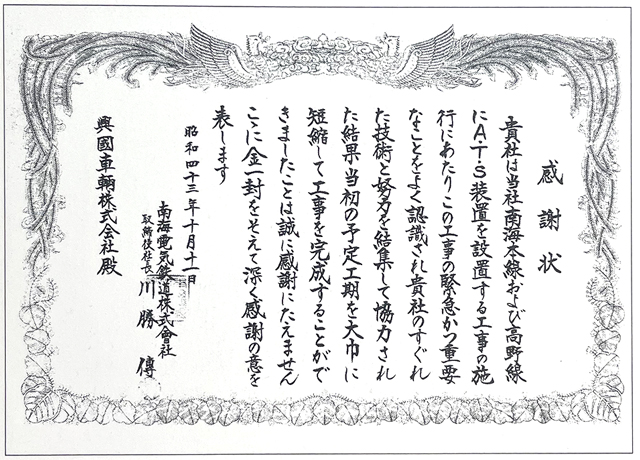 感謝状
貴社は当社南海本線および高野線
にA.T.S装置を設置する工事の施
行にあたりこの工事の緊急かつ重要
なことをよく認識され貴社のすぐれ
た技術と努力を結集して協力され
た結果当初の予定工期を大巾に
短縮して工事を完成することがで
きましたことは誠に感謝にたえません
ここに金一封をそえて深く感謝の意を
表します
昭和四十三年十月十一日
南海電気鉄道株式會社
取締役社長 川勝傳
興國車輛株式会社殿